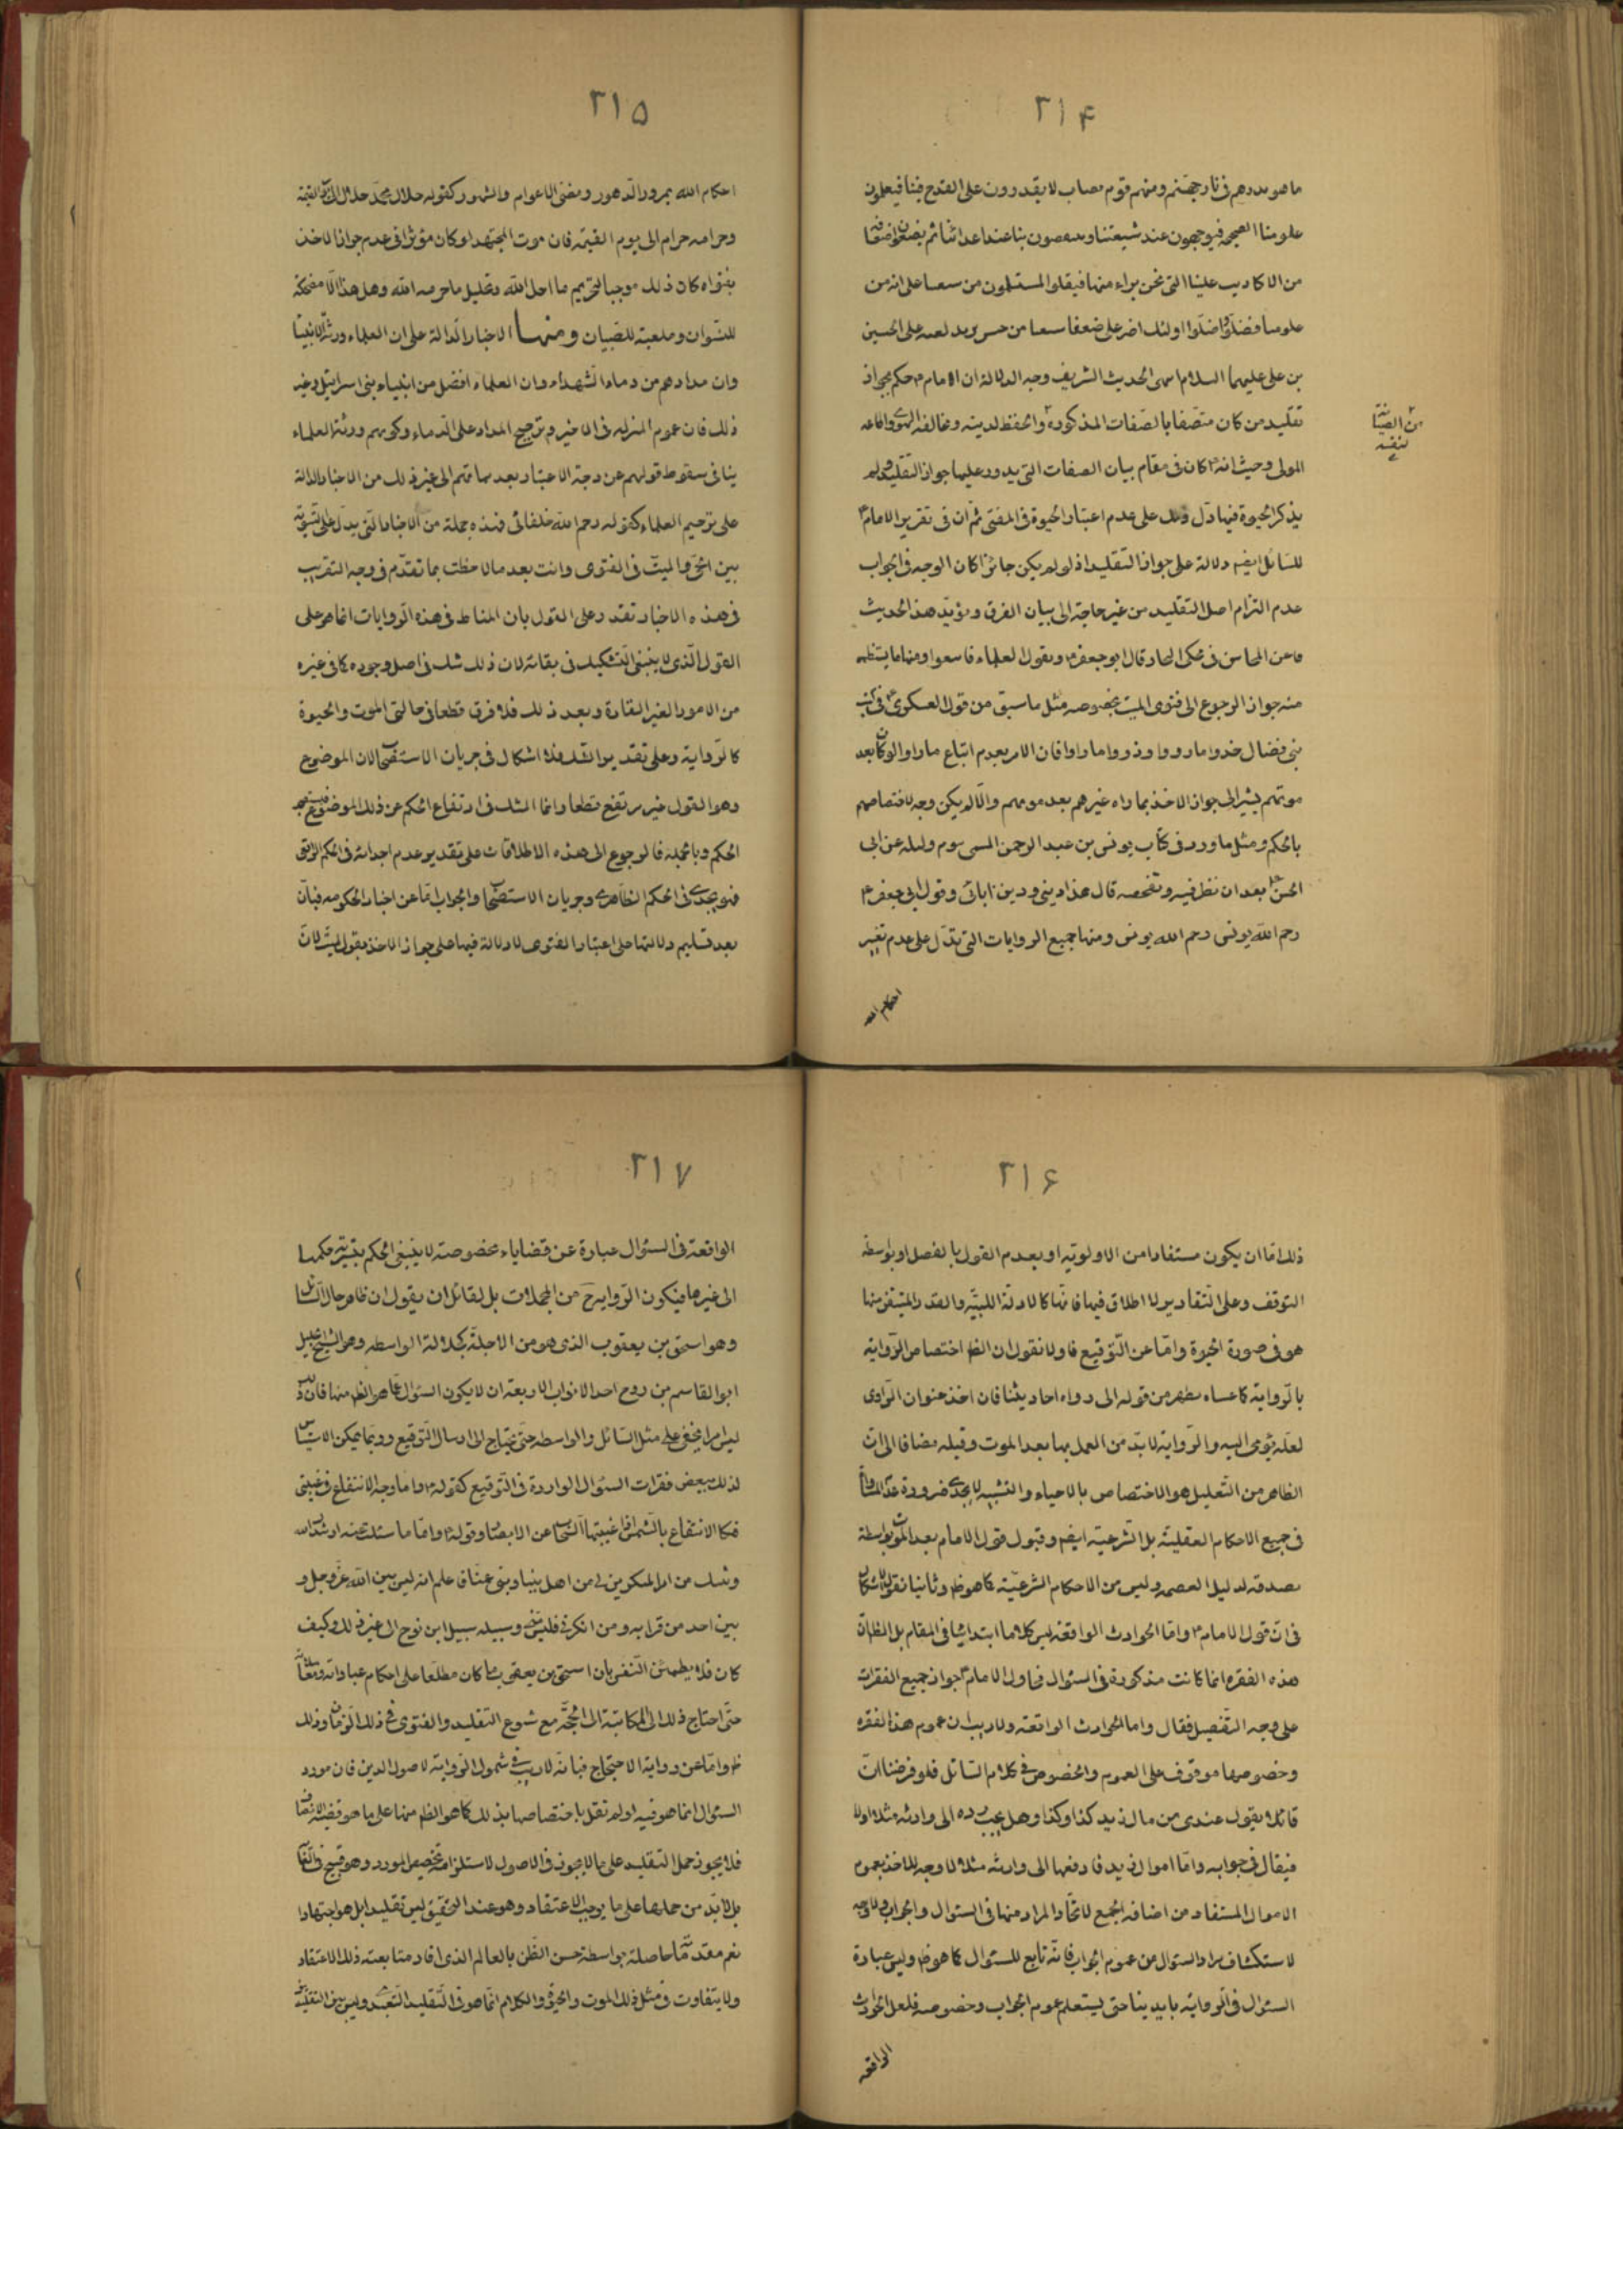 ٢١۴
ما هو يدرهم فى نار جهنم ومنهم قوم نصاب لا يقدرون على القدح فينا فيعلمون
علومنا الصحيحه فيوجهون عند شيعتنا وينقصون بنا عند اعدائنا ثم يضعون اضعافه
من الاكاذيب علينا التى نحن براء منها فيقلد المستسلمون من شيعتنا على انه من
علومنا فضلّوا واضلّوا اولئك اضر على ضعفا شيعتنا من جيش يزيد لعنه على الحسين
بن على عليهما السلام انتهى الحديث الشريف وجه الدلالة ان الامام ۴ حكم بجواز
تقليد من كان متصفا بالصّفات المذكوره والحفظ لدينه ومخالفة الهوى واطاعة
من الصيانة لنفسه
المولى وحيث انه ۴ كان فى مقام بيان الصفات التى يدور عليها جواز التقليد ولم
يذكر الحيوة فيها دلّ ذلك على عدم اعتبار الحيوة فى المفتى ثم ان فى تقرير الامام ۴
للسّائل ايضا دلالة على جواز التقليد اذ لو لم يكن جائزا كان الوجه فى الجواب
عدم التزام اصل التقليد من غير حاجة الى بيان الفرق ويؤيّد هذا الحديث
ما عن المحاسن فى محكى البحار قال ابو جعفر ۴ ويقول العلماء فاسمعوا ومنها ما يستظهر
منه جواز الرجوع الى فتوى الميت بخصوصه مثل ما سبق من قول العسكرى ۴ فى كتب
بنى فضال خذوا ما رووا وذروا ما راوا فان الامر بعدم اتباع ما راوا ولو كان بعد
موتهم يشير الى جواز الاخذ بما راه غيرهم بعد موتهم والّا لم يكن وجه لاختصاصهم
بالحكم ومثل ما ورد فى كتاب يونس بن عبد الرحمن المسمى بيوم وليلة عن ابى
الحسن ۴ بعد ان نظر فيه وتفحصه قال هذا دينى ودين ابائى وقول ابى جعفر ۴
رحم الله يونس رحم الله يونس ومنها جميع الروايات التى تدلّ على عدم تغيير
احكام الله
٢١۵
احكام الله بمرور الدهور ومضى الاعوام والشهور كقوله حلال محمّد حلال الى يوم القيمة
وحرامه حرام الى يوم القيمة فان موت المجتهد لو كان مؤثرا فى عدم جواز الاخذ
بفتواه كان ذلك موجبا لتحريم ما احل الله وتحليل ما حرمه الله وهل هذا الّا مضحكة
للنسوان وملعبة للصّبيان ومنها الاخبار الدالة على ان العلماء ورثة الانبياء
وان مدادهم من دماء الشهداء وان العلماء افضل من انبياء بنى اسرائيل وغير
ذلك فان عموم المنزله فى الاخير وترجيح المداد على الدماء وكونهم ورثة العلماء
ينافى سقوط قولهم عن درجة الاعتبار بعد مماتهم الى غير ذلك من الاخبار الدالة
على ترحيم العلماء كقوله رحم الله خلفائى فهذه جملة من الاخبار التى يدل على تسوية
بين الحىّ والميت فى الفتوى وانت بعد ما لاحظت بما تقدّم فى وجه التقريب
فى هذه الاخبار تقدر على القول بان المناط فى هذه الروايات انما هو على
القول الذى لا ينبغى التشكيك فى بقائه لان ذلك شك فى اصل وجوده كما فى غيره
من الامور الغير القارة وبعد ذلك فلا فرق قطعا فى حالتى الموت والحيوة
كالرواية وعلى تقدير الشك فلا اشكال فى جريان الاستصحاب لان الموضوع
وهو القول غير مرتفع قطعا وانما الشك فى ارتفاع الحكم عن ذلك الموضوع فيستصحب
الحكم وبالجمله فالرجوع الى هذه الاطلاقات على تقدير عدم اجدائه فى الحكم الواقعى
فهو يجدى فى الحكم الظاهرى وجريان الاستصحاب والجواب اما عن اخبار الحكومه فبانّ
بعد تسليم دلالتها على اعتبار الفتوى لا دلالة فيها على جواز الاخذ بقول الميت لانّ
٢١۶
ذلك امّا ان يكون مستفادا من الاولويّه او بعدم القول بالفصل او بواسطة
التوقف وعلى التقادير لا اطلاق فيها فانها كالادلة اللبيّه والقدر المتيقن منها
هو فى صورة الحيوة وامّا عن التّوقيع فاولا نقول ان الظ اختصاص الرّواية
بالرواية كما عساه يظهر من قوله الى رواة احاديثنا فان اخذ عنوان الراوى
لعلّه يؤمى اليه والرّواية لا بدّ من العمل بها بعد الموت وقبله مضافا الى ان
الظاهر من التعليل هو الاختصاص بالاحياء والتشبيه لا يجدى ضرورة عدم المساواة
فى جميع الاحكام العقليّة بل الشرعيّه ايضا وقبول قول الامام بعد الموت بواسطة
تصدقه لدليل العصمه وليس من الاحكام الشرعيّة كما هو ظ وثانيا نقول لا اشكال
فى انّ قول الامام ۴ واما الحوادث الواقعة ليس كلاما ابتدائيا فى المقام بل الظ ان
هذه الفقره انما كانت مذكورة فى السئوال فحاول الامام ۴ جواز جميع الفقرات
على وجه التفصيل فقال واما الحوادث الواقعه ولا ريب ان عموم هذا الفقره
وخصوصها موقوف على العموم والخصوص فى كلام السّائل فلو فرضنا انّ
قائلا يقول عندى من مال زيد كذا وكذا وهل يجب رده الى وارثه مثلا او لا
فيقال فى جوابه وامّا اموال زيد فادفعها الى وارثه مثلا لا وجه للاخذ بعموم
الاموال المستفاد من اضافة الجمع لاتحاد المراد منها فى السئوال والجواب ولا وجه
لاستكشاف مراد السئوال من عموم الجواب فانّه تابع للسئوال كما هو ظ وليس عبارة
السئوال فى الرواية بايدينا حتى يستعلم عموم الجواب وخصوصه فلعل الحوادث
الواقعه
٢١٧
الواقعة فى السئوال عبارة عن قضايا مخصوصة لا ينبغى الحكم بتسرية حكمها
الى غيرها فيكون الرّواية ح من المجملات بل لقائل ان يقول ان ظاهر حال السّائل
وهو اسحق بن يعقوب الذى هو من الاجلّة كجلالة الواسطه وهو الشيخ الجليل
ابو القاسم بن روح احد الانواب الاربعة ان لا يكون السئوال عمّا هو الظ منها فان ذلك
ليس امرا يخفى على مثل السّائل والواسطه حتى يحتاج الى ارسال التّوقيع وربما يمكن الاستيناس
لذلك ببعض فقرات السئوال الواردة فى التّوقيع كقوله ۴ واما وجه الانتفاع فى غيبتى
فكالانتفاع بالشمس اذا غيبتها السّحاب عن الابصار وقوله واما ما سئلت عنه ارشدك الله
وثبتك من امر المنكرين لى من اهل بيتنا وبنى عمّنا فاعلم انه ليس بين الله عزّ وجل و
بين احد من قرابه ومن انكرنى فليس منى وسبيله سبيل ابن نوح الى غير ذلك وكيف
كان فلا يطمئن النفس بان اسحق بن يعقوب ما كان مطلعا على احكام عباداته ومعاملاته
حتى احتاج ذلك الى المكاتبة الى الحجّة مع شيوع التقليد والفتوى فى ذلك الزمان وذلك
ظ وامّا عن رواية الاحتجاج فبانّه لا ريب فى شمول الرواية لاصول الدين فان مورد
السئوال انما هو فيه او لم نقل باختصاصها بذلك كما هو الظ منها على ما هو قضية الانصاف
فلا يجوز حمل التقليد على ما لا يجوز فى الاصول لاستلزامه تخصيص المورد وهو قبيح فى الغاية
بل لا بدّ من حملها على ما يوجب الاعتقاد وهو عند التحقيق ليس تقليدا بل هو اجتهادا
نعم مقدّماتها حاصلة بواسطة حسن الظّن بالعالم الذى افاد متابعته ذلك الاعتقاد
ولا يتفاوت فى مثل ذلك الموت والحيوة والكلام انما هو فى التقليد التعبّدى وليس بين التقليد